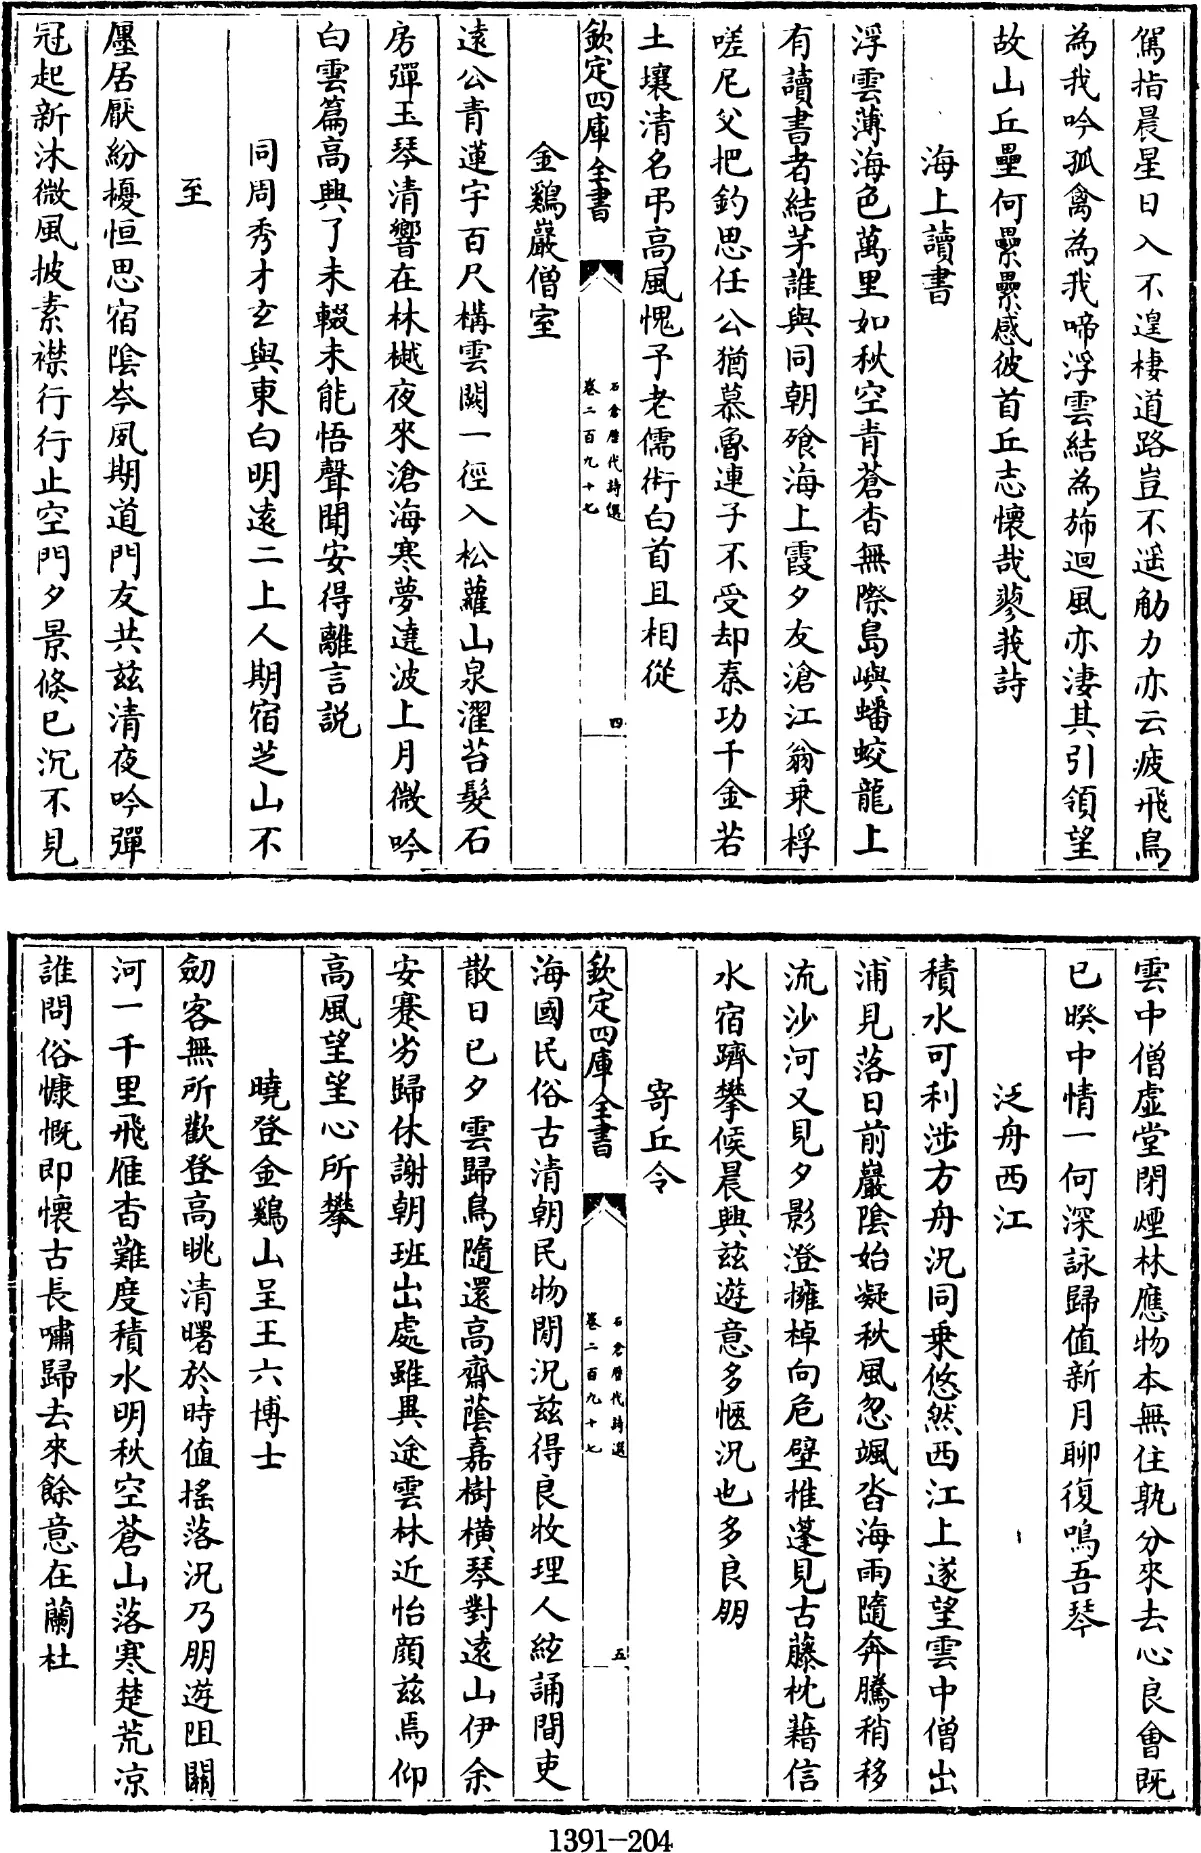 駕指晨星日入不遑棲道路豈不遥觔力亦云疲飛鳥
為我吟孤禽為我啼浮雲結為斾迴風亦淒其引領望
故山丘壘何纍纍感彼首丘志懷哉蓼莪詩
海上讀書
浮雲薄海色萬里如秋空青蒼杳無際島嶼蟠蛟龍上
有讀書者結茅誰與同朝飱海上霞夕友滄江翁乗桴
嗟尼父把釣思任公猶慕魯連子不受却秦功千金若
土壤清名弔高風愧予老儒術白首且相從
欽定四庫全書
石倉歴代詩選
卷二百九十七
四
金鷄巖僧室
遠公青蓮宇百尺構雲闕一徑入松蘿山泉濯苔髮石
房彈玉琴清響在林樾夜來滄海寒夢遶波上月微吟
白雲篇高興了未輟未能悟聲聞安得離言説
同周秀才玄與東白明遠二上人期宿芝山不
至
廛居厭紛擾恒思宿陰岑夙期道門友共兹清夜吟彈
冠起新沐微風披素襟行行止空門夕景倐已沉不見
雲中僧虚堂閉煙林應物本無住孰分來去心良會既
已暌中情一何深詠歸值新月聊復鳴吾琴
泛舟西江
積水可利涉方舟況同乗悠然西江上遂望雲中僧出
浦見落日前巖陰始凝秋風忽颯沓海雨隨奔騰稍移
流沙河又見夕影澄擁棹向危壁推蓬見古藤枕藉信
水宿躋攀候晨興兹遊意多愜況也多良朋
寄丘令
欽定四庫全書
石倉歴代詩選
卷二百九十七
五
海國民俗古清朝民物閒況兹得良牧理人絃誦間吏
散日已夕雲歸鳥隨還高齋蔭嘉樹橫琴對遠山伊余
安蹇劣歸休謝朝班出處雖異途雲林近怡顔兹焉仰
高風望望心所攀
曉登金鷄山呈王六博士
劒客無所歡登高眺清曙於時值搖落況乃朋遊阻關
河一千里飛雁杳難度積水明秋空蒼山落寒楚荒凉
誰問俗慷慨即懷古長嘯歸去來餘意在蘭杜
1391-204